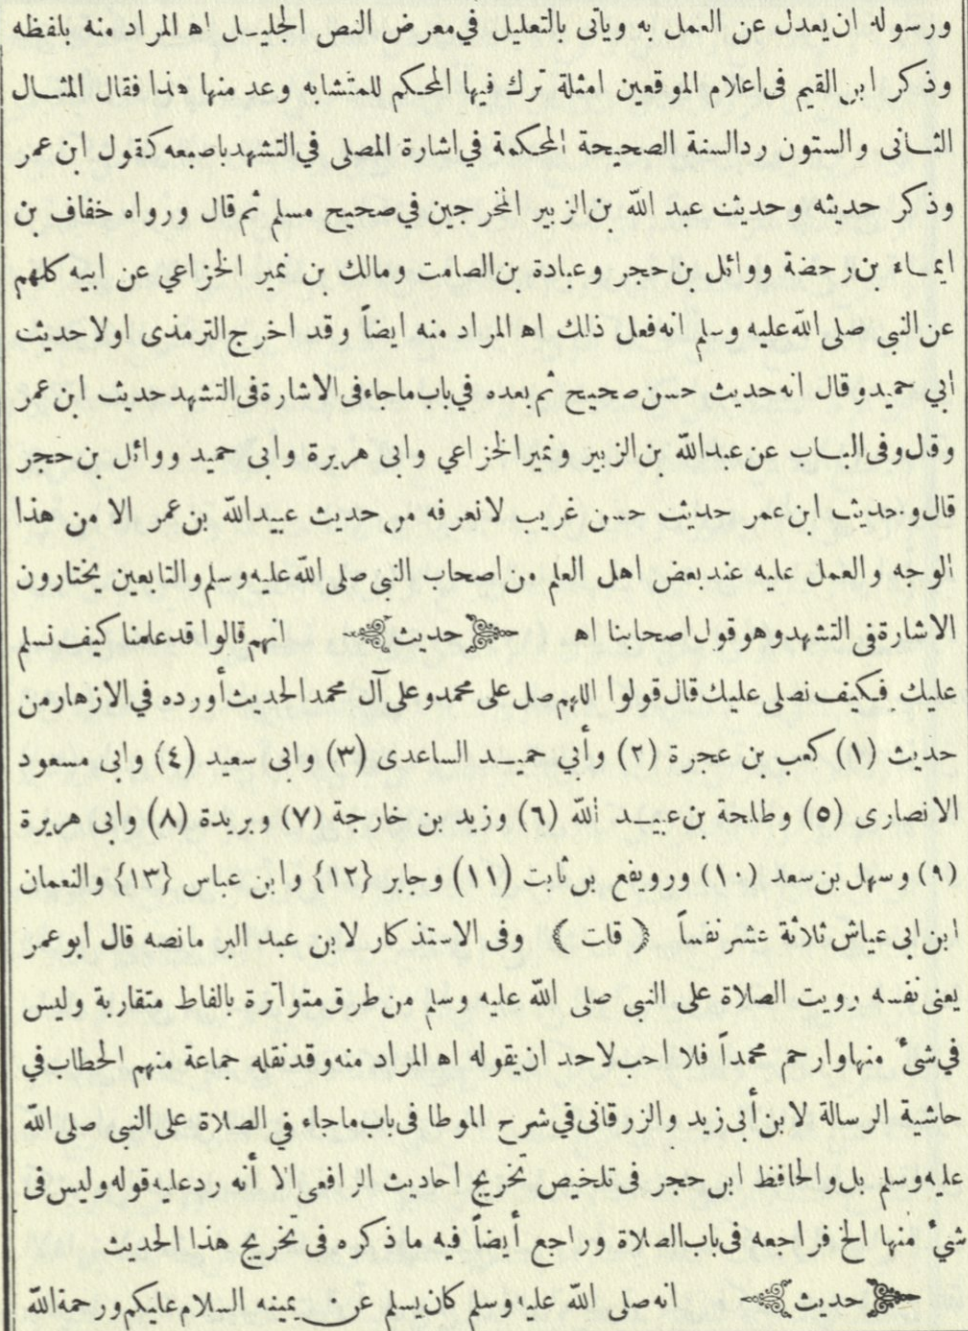 ورسوله ان يعدل عن العمل به ويأتى بالتعليل في معرض النص الجليـل اه المراد منه بلفظه
وذكر ابن القيم فى اعلام الموقعين امثلة ترك فيها المحكم للمتشابه وعد منها هذا فقال المثـال
الثـانى والستون رد السنة الصحيحة المحكمة في اشارة المصلى في التشهد باصبعه كقول ابن عمر
وذكر حديثه وحديث عبد الله بن الزبير المخرجين في صحيح مسلم ثم قال ورواه خفاف بن
ايمـاء بن رحضة ووائل بن حجر وعبادة بن الصامت ومالك بن نمير الخزاعي عن ابيه كلهم
عن النبى صلى الله عليه وسلم انه فعل ذلك اه المراد منه ايضاً وقد اخرج الترمذى اولا حديث
ابي حميد وقال انه حديث حسن صحيح ثم بعده في باب ماجاء فى الاشارة فى التشهد حديث ابن عمر
وقال وفى البـاب عن عبد الله بن الزبير ونمير الخزاعي وابى هريرة وابى حميد ووائل بن حجر
قال وحديث ابن عمر حديث حسن غريب لا نعرفه من حديث عبيد الله بن عمر الا من هذا
الوجه والعمل عليه عند بعض اهل العلم من اصحاب النبى صلى الله عليه وسلم والتابعين يختارون
الاشارة فى التشهد وهو قول اصحابنا اه حديث انهم قالوا قد علمنا كيف نسلم
عليك فكيف نصلى عليك قال قولوا اللهم صل على محمد وعلى آل محمد الحديث أورده في الازهار من
حديث (١) كعب بن عجرة (٢) وأبي حميـد الساعدى (٣) وابى سعيد (٤) وابى مسعود
الانصارى (٥) وطلحة بن عبيـد الله (٦) وزيد بن خارجة (٧) وبريدة (٨) وابى هريرة
(٩) وسهل بن سعد (١٠) ورويفع بن ثابت (١١) وجابر {١٢} وابن عباس {١٣} والنعمان
ابن ابى عياش ثلاثة عشر نفساً ( قلت ) وفى الاستذكار لابن عبد البر ما نصه قال ابو عمر
يعنى نفسه رويت الصلاة على النبى صلى الله عليه وسلم من طرق متواترة بالفاظ متقاربة وليس
في شىء منها وارحم محمداً فلا احب لاحد ان يقوله اه المراد منه وقد نقله جماعة منهم الحطاب في
حاشية الرسالة لابن أبى زيد والزرقانى في شرح الموطا فى باب ماجاء في الصلاة على النبى صلى الله
عليه وسلم بل والحافظ ابن حجر فى تلخيص تخريج احاديث الرافعى الا أنه رد عليه قوله وليس فى
شىء منها الخ فراجعه فى باب الصلاة وراجع أيضاً فيه ما ذكره فى تخريج هذا الحديث
حديث انه صلى الله عليه وسلم كان يسلم عن يمينه السلام عليكم ورحمة الله